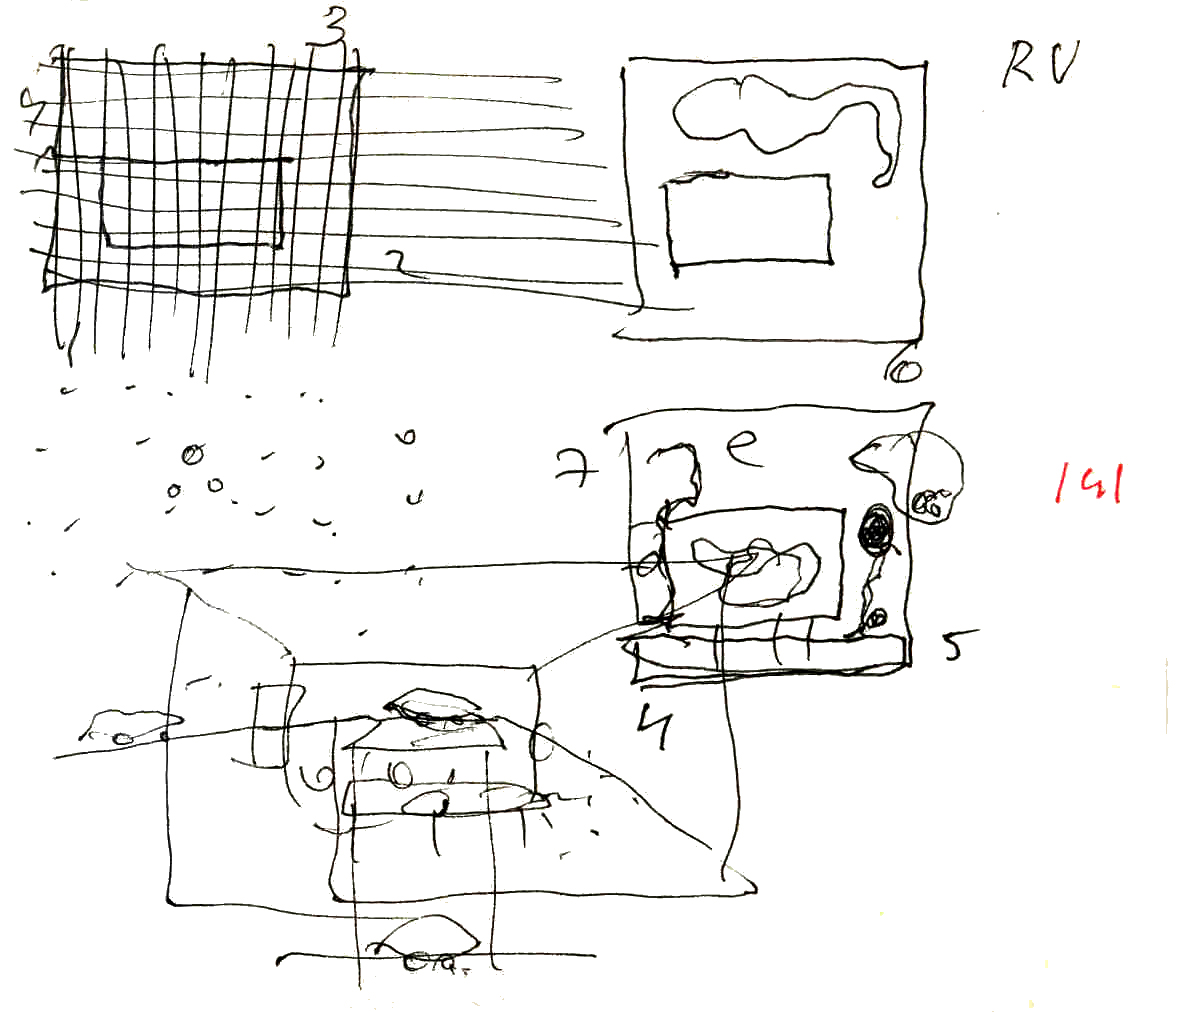 3
RV
2
6
7
e
141
5
4